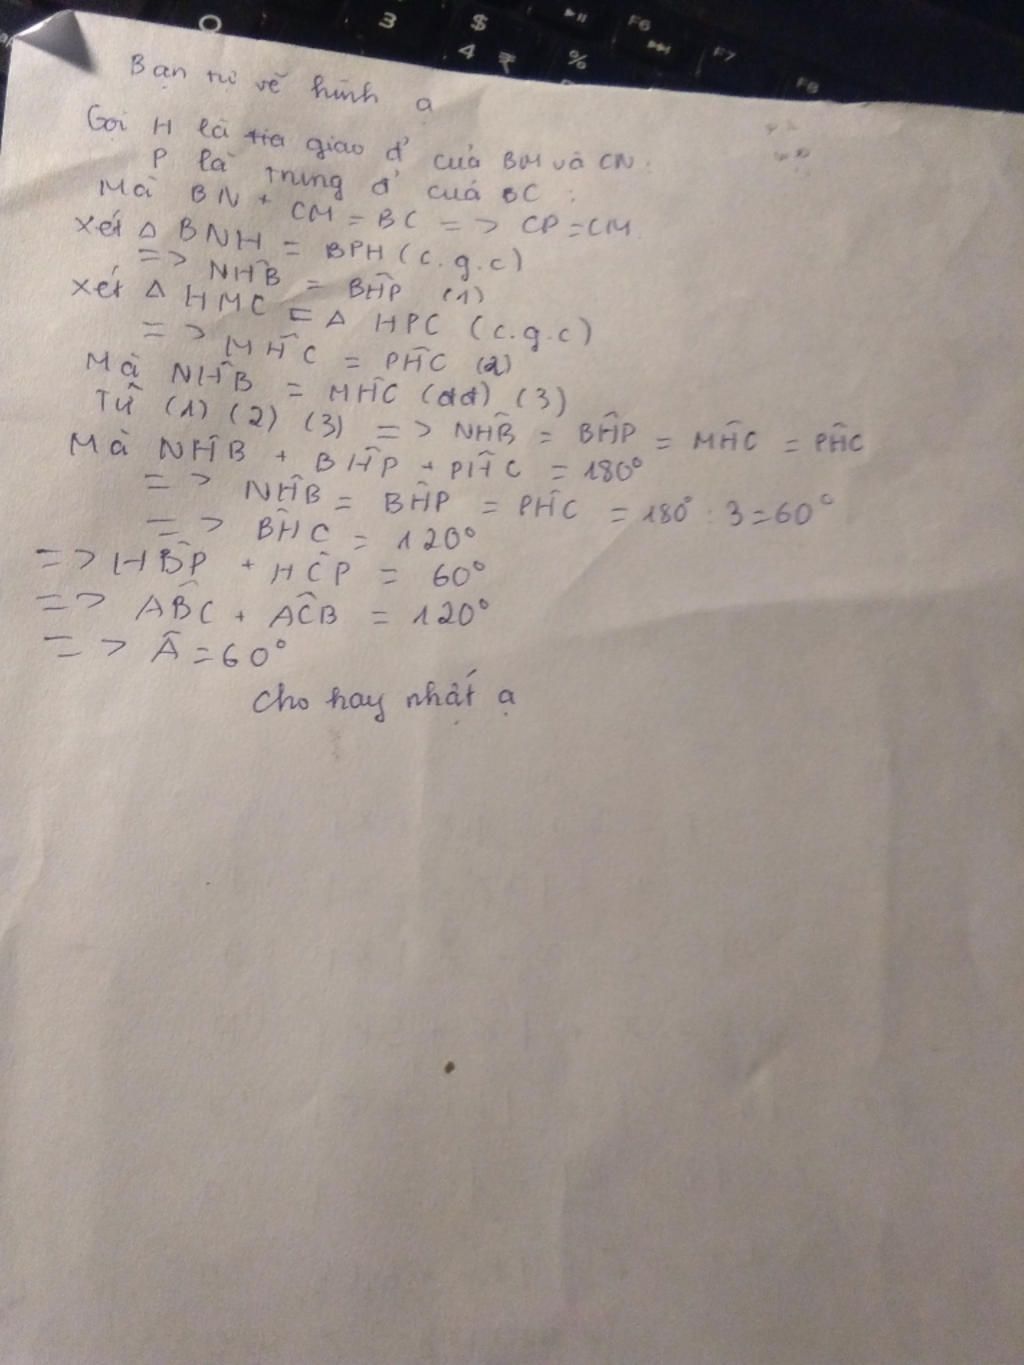 3
$
4 ₹
%
F6
F7
F8
Bạn tự vẽ hình ạ
Gọi H là giao đ' của BM và CN.
P là trung đ' của BC :
Mà BN + CM = BC => CP = CM
Xét Δ BNH = BPH (c.g.c)
=> NĤB = BĤP (1)
Xét Δ HMC = Δ HPC (c.g.c)
=> MĤC = PĤC (2)
Mà NĤB = MĤC (đđ) (3)
Từ (1) (2) (3) => NĤB = BĤP = MĤC = PĤC
Mà NĤB + BĤP + PĤC = 180°
=> NĤB = BĤP = PĤC = 180° : 3 = 60°
=> BĤC = 120°
=> HB̂P + HĈP = 60°
=> AB̂C + AĈB = 120°
=> Â = 60°
Cho hay nhất ạ